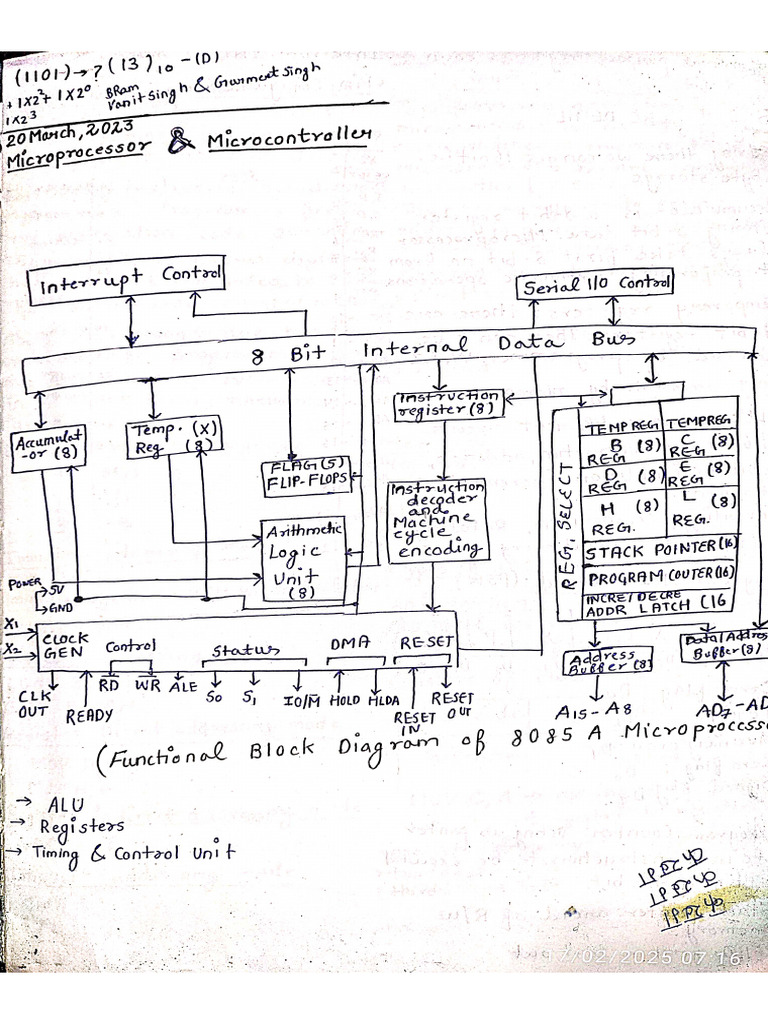 (1101)→ ? (13)10 -(D)
+ 1X2² + 1X2⁰
1X2³
Vanit Singh & Gurmeet Singh
20 March, 2023
Microprocessor & Microcontroller
Interrupt Control
Serial I/O Control
8 Bit Internal Data Bus
Accumulat
-or (8)
Temp. (X)
Reg (8)
FLAG(5)
FLIP-FLOPS
Instruction
register (8)
Instruction
decoder
and
Machine
cycle
encoding
Arithmetic
Logic
Unit
(8)
REG. SELECT
TEMP REG TEMPREG
B (8) C (8)
REG REG
D (8) E (8)
REG REG
H (8) L (8)
REG. REG.
STACK POINTER (16)
PROGRAM COUTER (16)
INCRE/DECRE
ADDR LATCH (16
POWER 5V
GND
X1
X2
CLOCK
GEN
Control
Status
DMA
RESET
Address
Buffer (8)
Data/Address
Buffer (8)
CLK
OUT
READY
RD WR ALE S0 S1 IO/M̅ HOLD HLDA
RESET
IN
RESET
OUT
A15-A8
AD7-AD
(Functional Block Diagram of 8085 A Microprocesso
→ ALU
→ Registers
→ Timing & Control Unit
7/02/2025 07:16